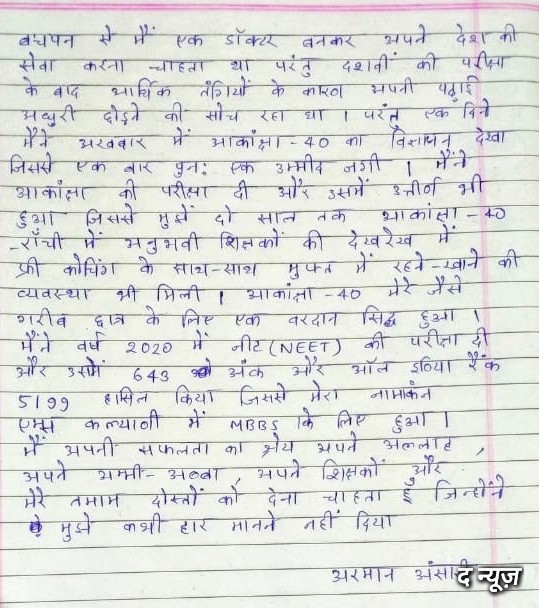 बचपन से मैं एक डॉक्टर बनकर अपने देश की
सेवा करना चाहता था परंतु दशवीं की परीक्षा
के बाद आर्थिक तंगियों के कारण अपनी पढ़ाई
अधुरी छोड़ने की सोच रहा था । परंतु एक दिन
मैंने अखबार में आकांक्षा-40 का विज्ञापन देखा
जिससे एक बार पुन: एक उम्मीद जगी । मैंने
आकांक्षा की परीक्षा दी और उसमें उत्तीर्ण भी
हुआ जिससे मुझे दो साल तक आकांक्षा-40
राँची में अनुभवी शिक्षकों की देखरेख में
फ्री कोचिंग के साथ-साथ मुफ्त में रहने-खाने की
व्यवस्था भी मिली । आकांक्षा-40 मेरे जैसे
गरीब छात्र के लिए एक वरदान सिद्ध हुआ ।
मैंने वर्ष 2020 में नीट (NEET) की परीक्षा दी
और उसमें 643 अंक और ऑल इंडिया रैंक
5199 हासिल किया जिससे मेरा नामांकन
एम्स कल्याणी में MBBS के लिए हुआ ।
मैं अपनी सफलता का श्रेय अपने अल्लाह ,
अपने अम्मी-अब्बा , अपने शिक्षकों और
मेरे तमाम दोस्तों को देना चाहता हूँ जिन्होंने
मुझे कभी हार मानने नहीं दिया
अरमान अंसारी
द न्यूज़